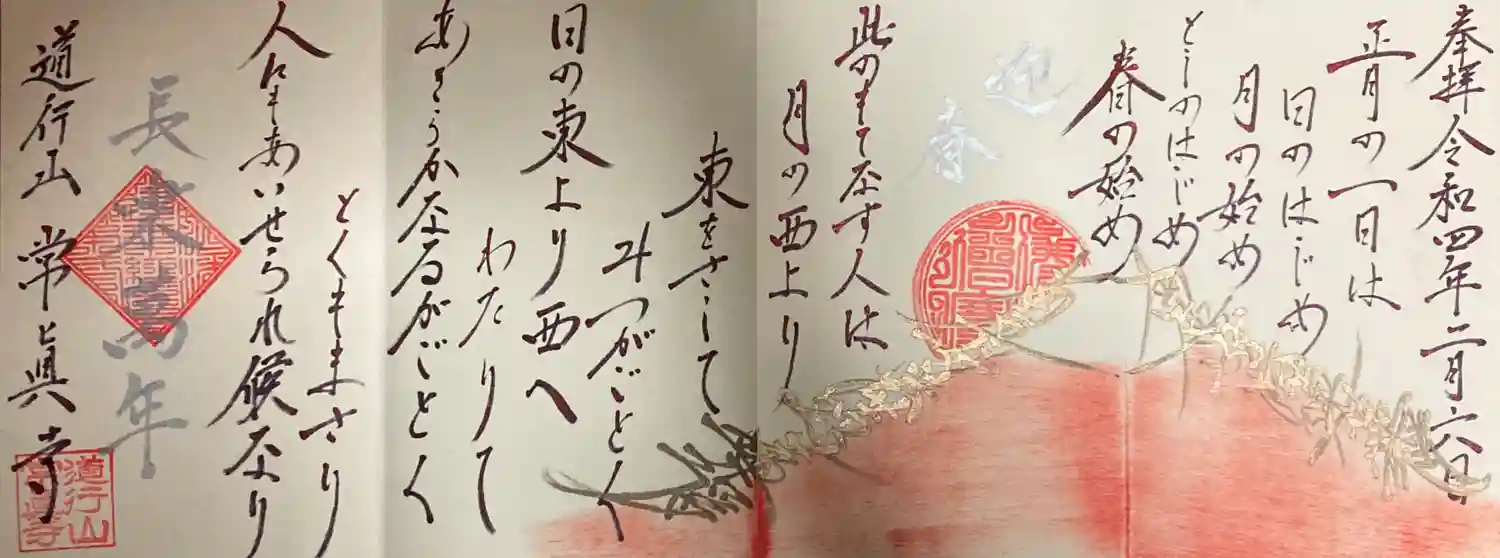 奉拝 令和四年二月六日
正月の一日は
日のはじめ
月の始め
としのはじめ
春の始め
迎春
此のもてなす人は
月の西より
東をさして
みつがごとく
日の東より西へ
わたりて
あきらかなるがごとく
とくもまさり
人にもあいせられ候なり
長楽萬年
道行山 常眞寺
道行山
常眞寺